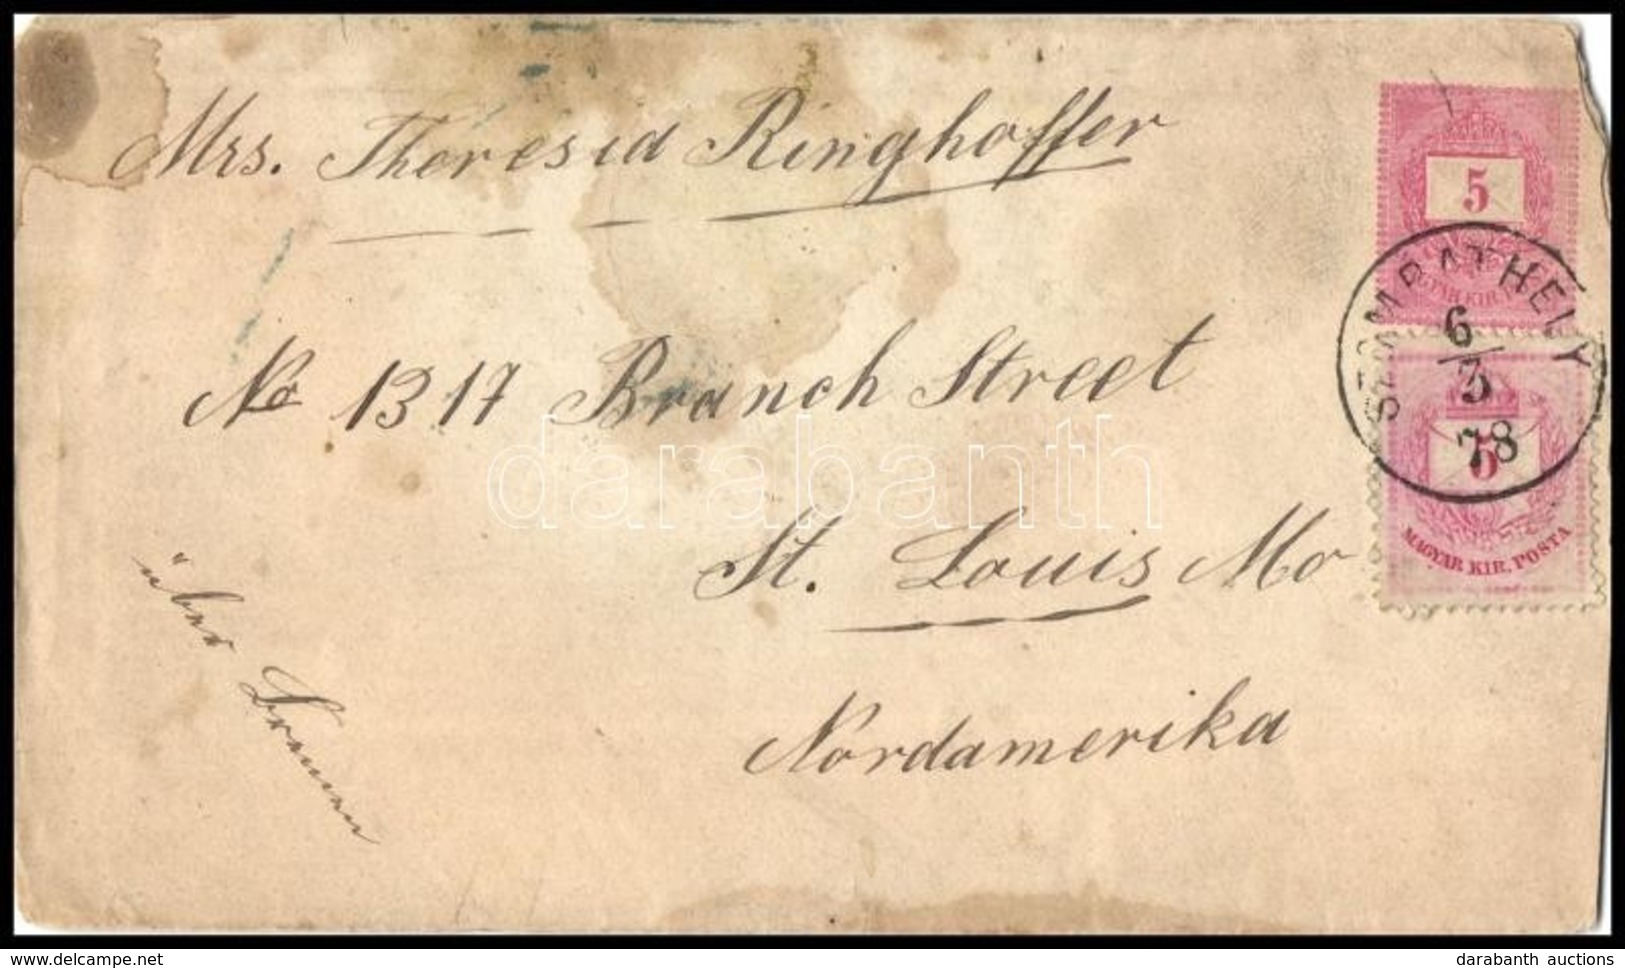 Mrs. Theresia Ringhoffer
No 1317 Branch Street
St. Louis Mo
Nordamerika
über Bremen
5
SZOMBATHELY
6/3
78
5
MAGYAR KIR. POSTA
darabanth
delcampe.net
darabanth auctions